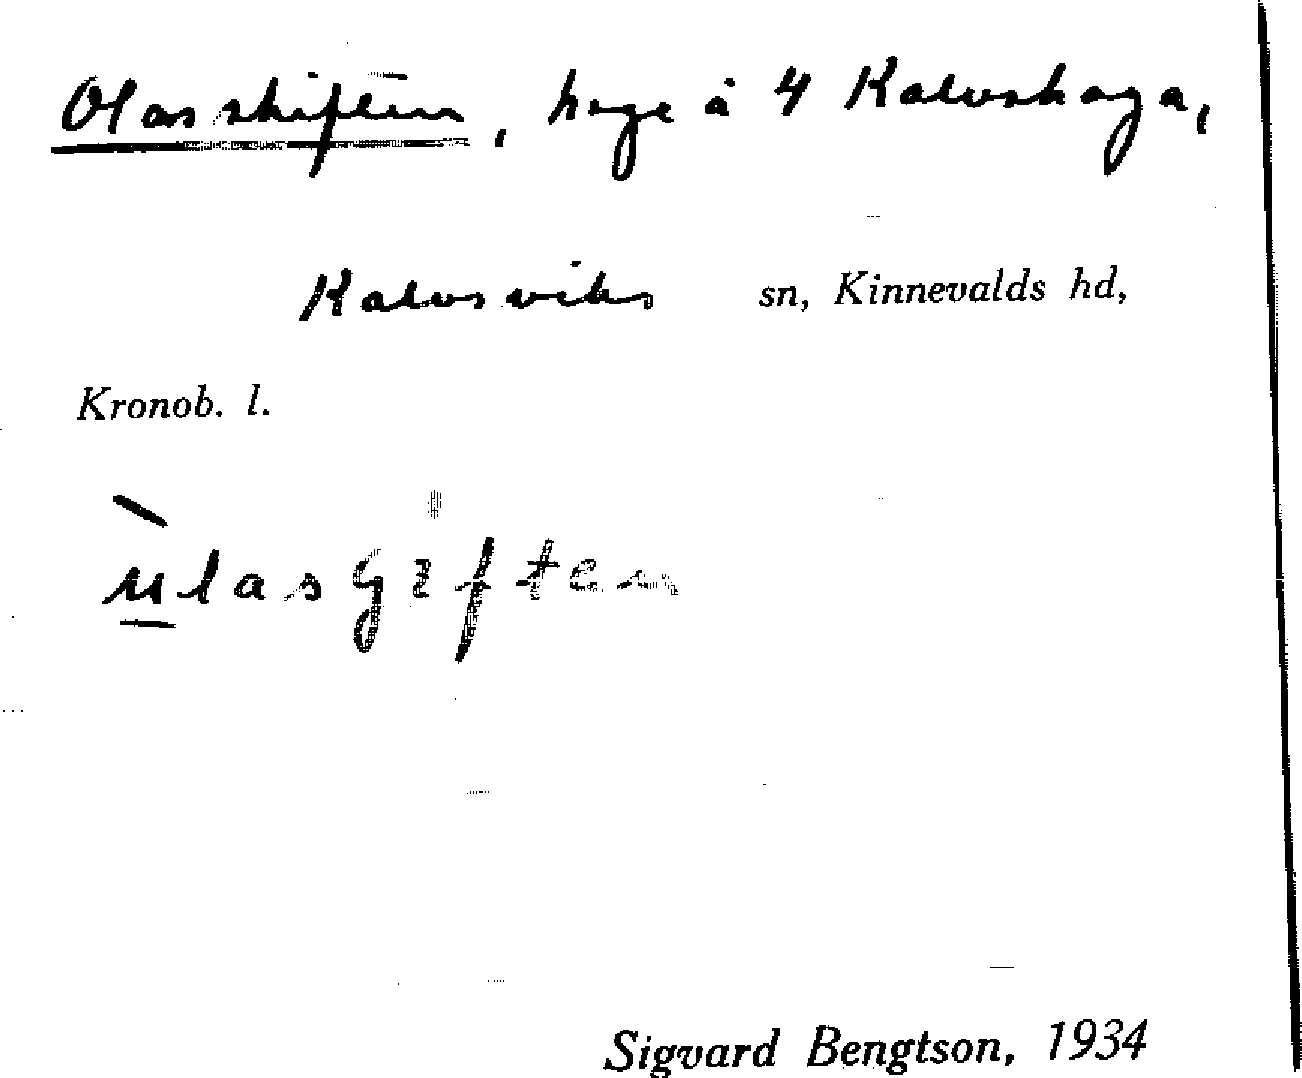 Olasskiften, hage å 4 Kalvshaga,
Kalvsviks sn, Kinnevalds hd,
Kronob. l.
Sigvard Bengtson, 1934